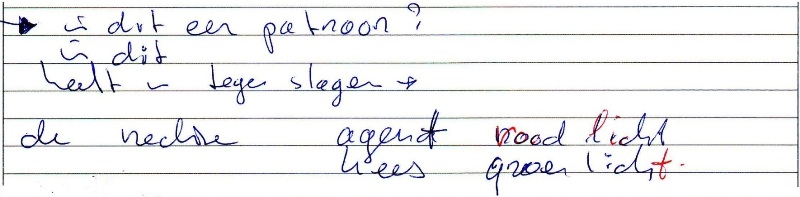 → is dit een patroon?
is dit
heelt u tegen slagen →
de rechse agent rood licht
kees groen licht.